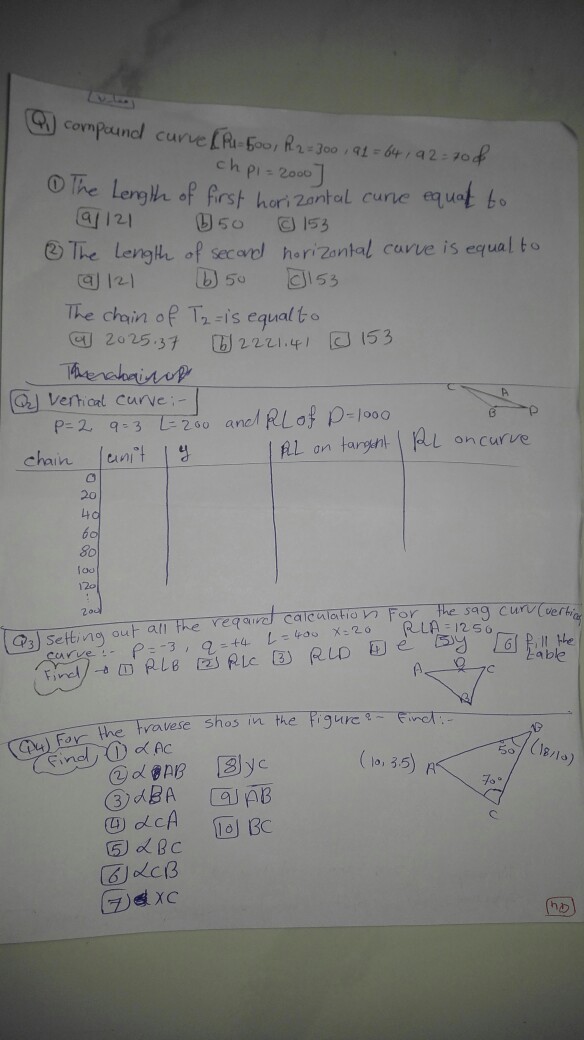 Q1 compound curve [R1=500, R2=300, q1=64, q2=70 &
ch p1=2000]
① The Length of first horizontal curve equal to
a 121 b 50 c 153
② The Length of second horizontal curve is equal to
a 121 b 50 c 153
The chain of T2= is equal to
a 2025.37 b 2221.41 c 153
Q2 Vertical curve:-
C A B D
P=2 q=3 L=200 and RL of D=1000
chain unit y RL on tangent RL on curve
0
20
40
60
80
100
120
200
Q3 Setting out all the reqaird calculation For the sag curv (vertical
curve:- P=-3, q=+4 L=400 x=20 RLA=1250
Find → 1 RLB 2 RLC 3 RLD 4 e 5 y 6 Fill the table
A D C B
Q4 For the travese shos in the figure:- Find:-
Find ① αAC
② αAB 8 yc
③ αBA 9 AB
④ αCA 10 BC
5 αBC
6 αCB
7 XC
(10, 3.5) A B (18,10) 50 70° C